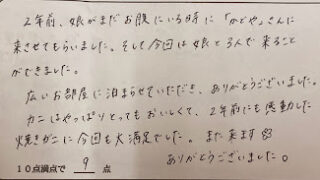 ２年前、娘がまだお腹にいる時に「かどや」さんに
来させてもらいました。そして今回は娘と３人で来ること
ができました。
広いお部屋に泊まらせていただき、ありがとうございました。
カニはやっぱりとってもおいしくて、２年前にも感動した
焼きガニに今回も大満足でした。また来ます
ありがとうございました。
１０点満点で 9 点